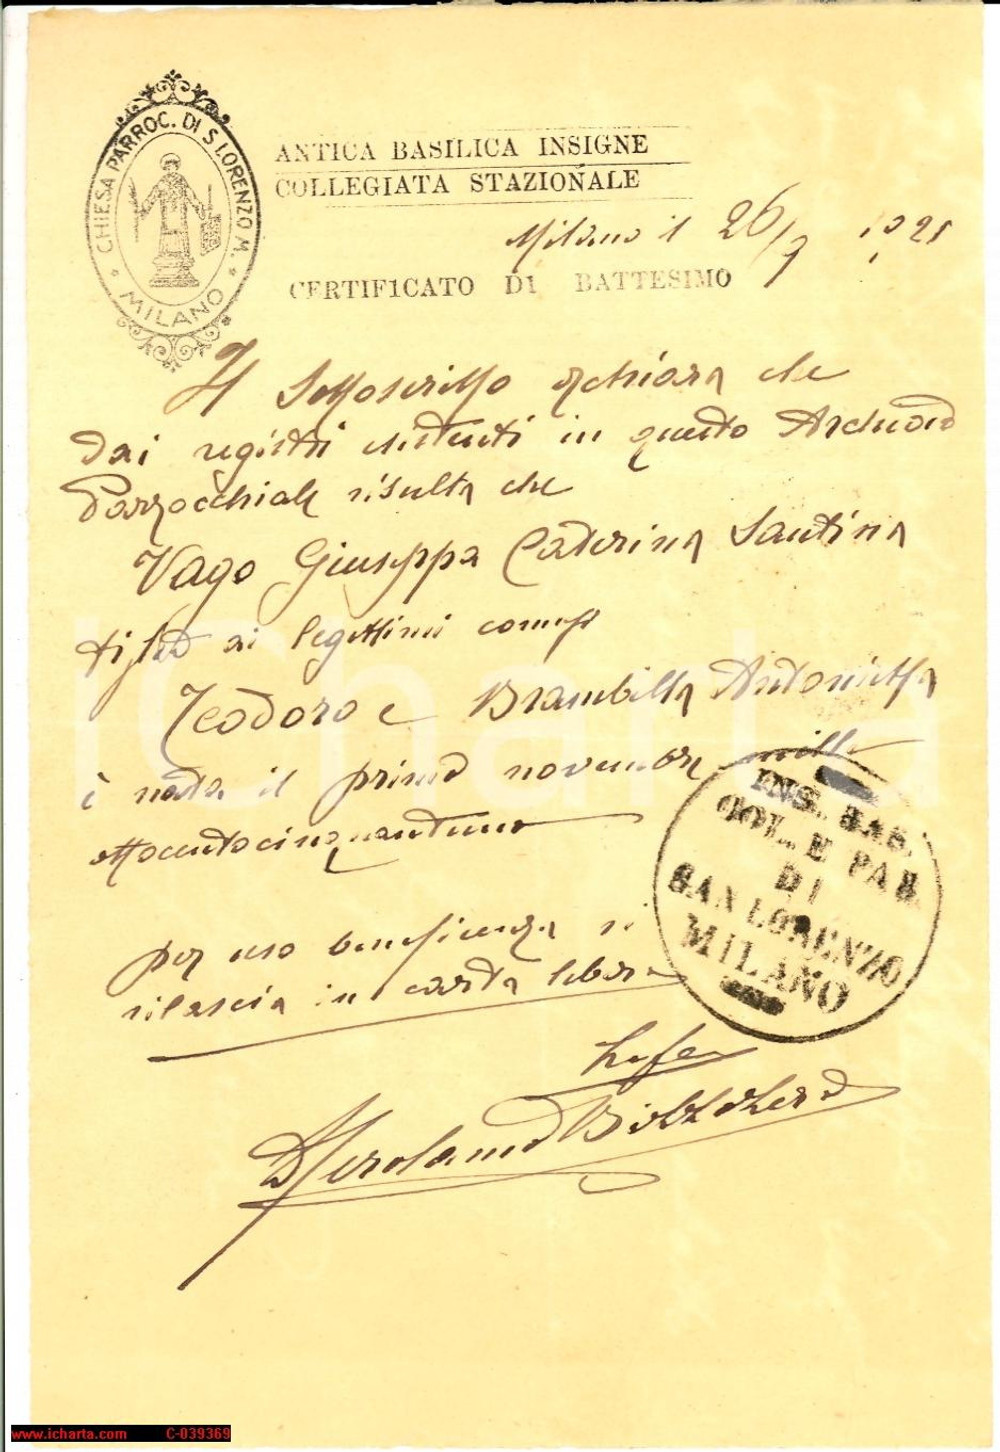 CHIESA PARROC. DI S LORENZO M.
* MILANO *
ANTICA BASILICA INSIGNE
COLLEGIATA STAZIONALE
Milano il 26/7 1921
CERTIFICATO DI BATTESIMO
Il Sottoscritto dichiara che
dai registri esistenti in questo Archivio
Parrocchiale risulta che
Vago Giuseppa Caterina Santina
figlia ai legittimi coniugi
Teodoro e Brambilla Antonietta
è nata il primo novembre mille
ottocentocinquantuno
per uso beneficenza si
rilascia in carta libera
INS. BAS.
COL. E PAR.
DI
SAN LORENZO
MILANO
iCharta
www.icharta.com C-039369